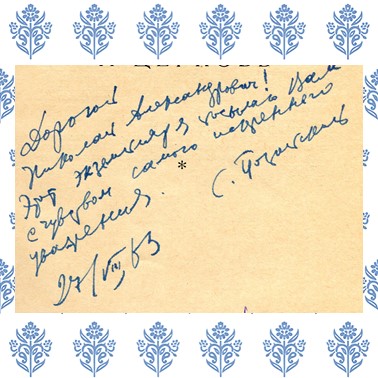 И ЦЕРКОВЬ
Дорогой
Николай Александрович!
Этот экземпляр я посылаю Вам
с чувством самого искреннего
уважения.
*
С.
27/VIII 83